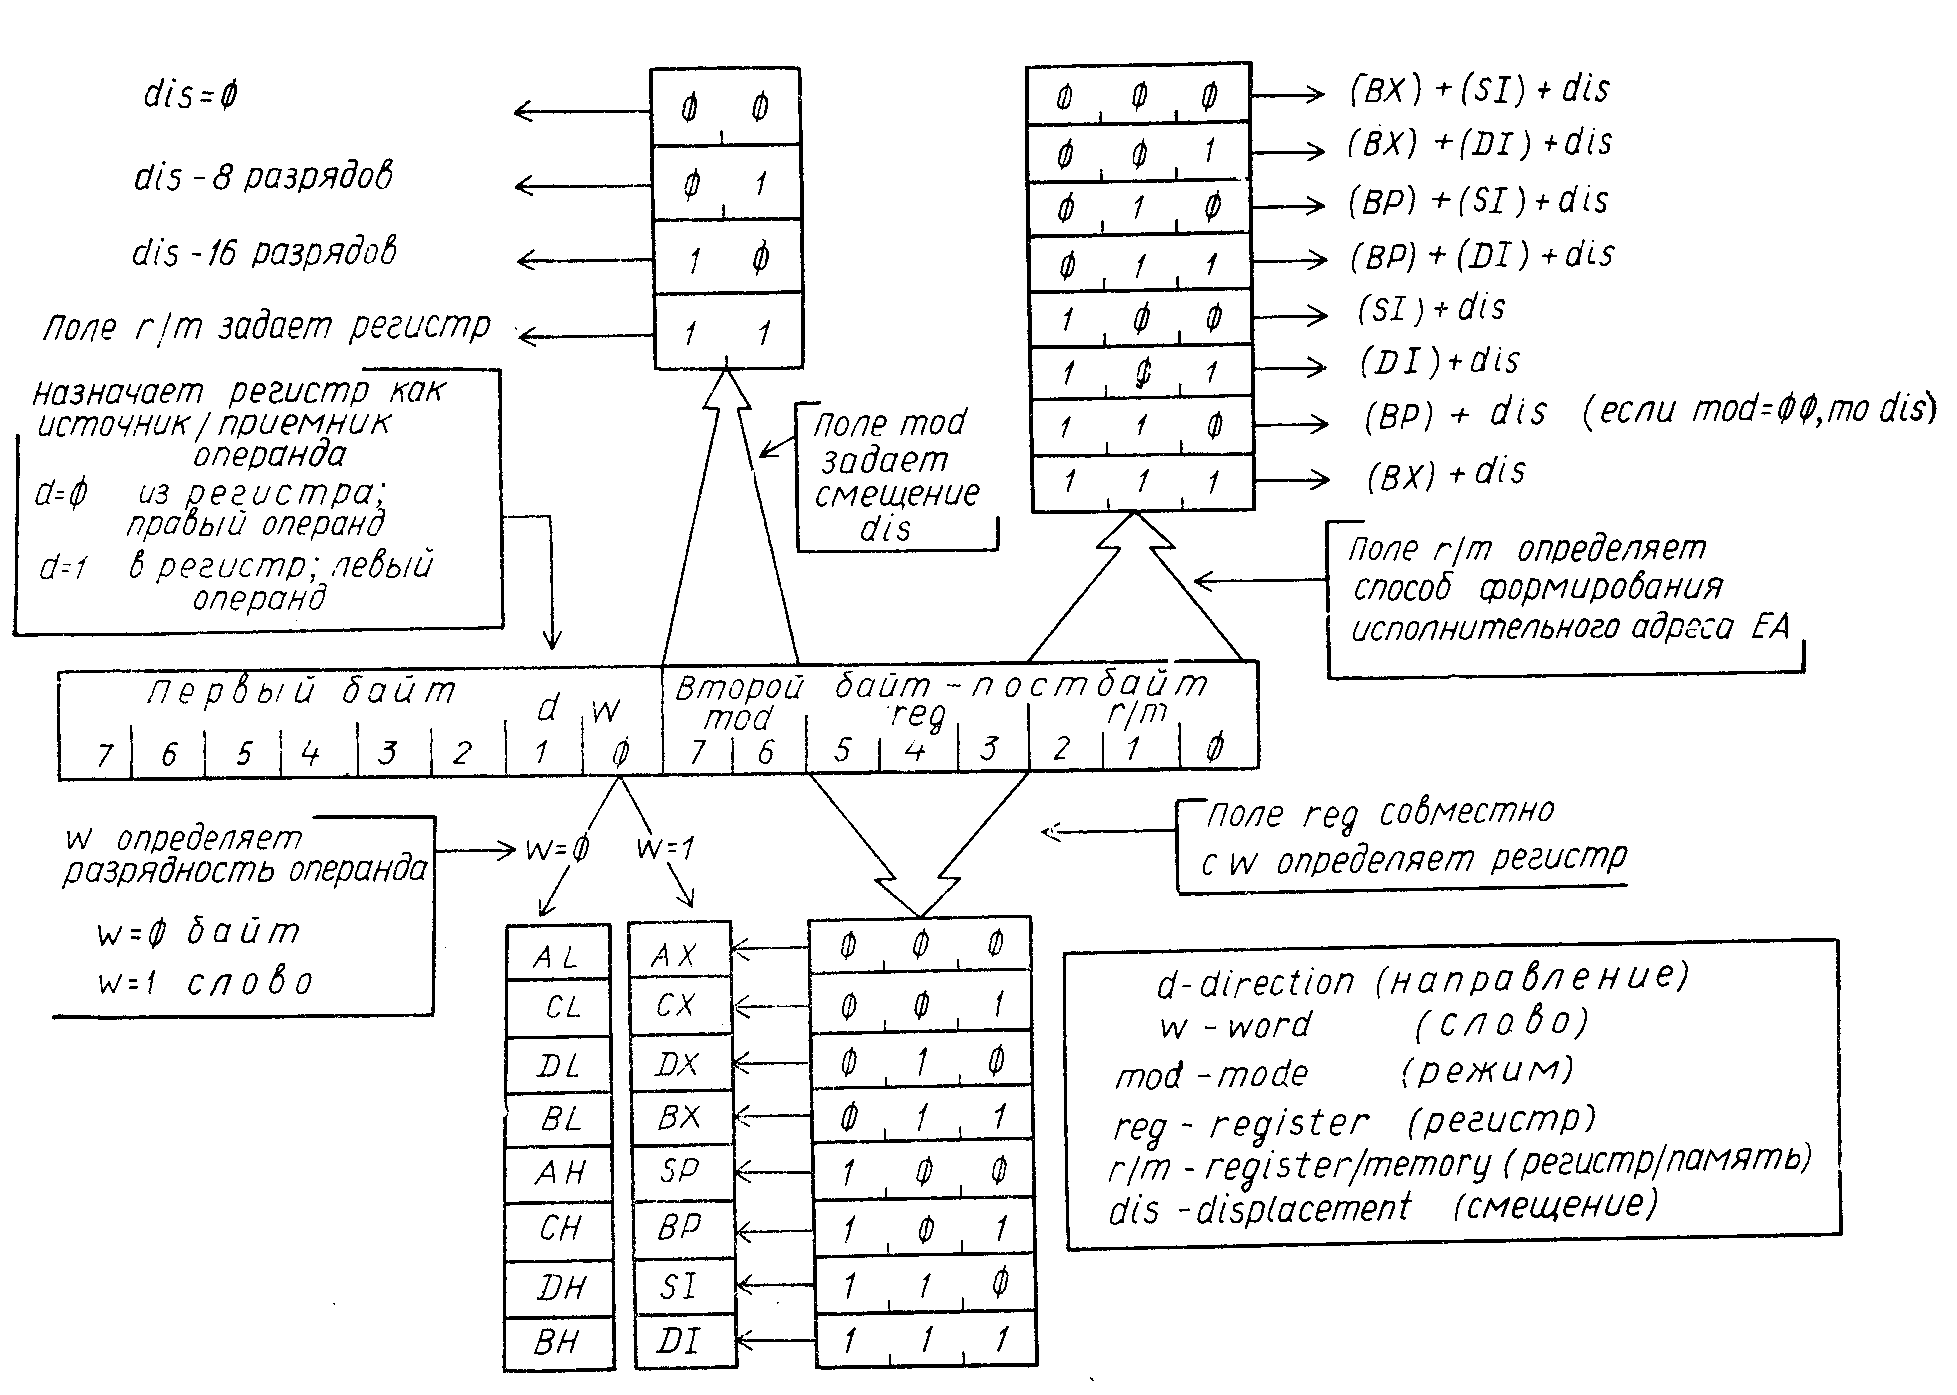 dis=∅
dis-8 разрядов
dis-16 разрядов
Поле r/m задает регистр
∅ ∅
∅ 1
1 ∅
1 1
∅ ∅ ∅
∅ ∅ 1
∅ 1 ∅
∅ 1 1
1 ∅ ∅
1 ∅ 1
1 1 ∅
1 1 1
(BX)+(SI)+dis
(BX)+(DI)+dis
(BP)+(SI)+dis
(BP)+(DI)+dis
(SI)+dis
(DI)+dis
(BP)+dis (если mod=∅∅,то dis)
(BX)+dis
Назначает регистр как
источник/приемник
операнда
d=∅ из регистра;
правый операнд
d=1 в регистр; левый
операнд
Поле mod
задает
смещение
dis
Поле r/m определяет
способ формирования
исполнительного адреса EA
Первый байт
d w
7 6 5 4 3 2 1 ∅
Второй байт-постбайт
mod reg r/m
7 6 5 4 3 2 1 ∅
w определяет
разрядность операнда
w=∅ байт
w=1 слово
w=∅ w=1
Поле reg совместно
с w определяет регистр
AL AX ∅ ∅ ∅
CL CX ∅ ∅ 1
DL DX ∅ 1 ∅
BL BX ∅ 1 1
AH SP 1 ∅ ∅
CH BP 1 ∅ 1
DH SI 1 1 ∅
BH DI 1 1 1
d-direction (направление)
w-word (слово)
mod-mode (режим)
reg-register (регистр)
r/m-register/memory (регистр/память)
dis-displacement (смещение)